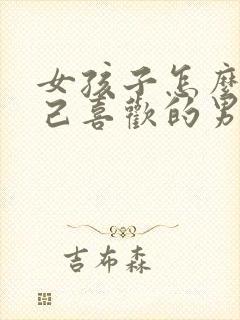 女孩子怎麼
己喜歡的男
吉布森